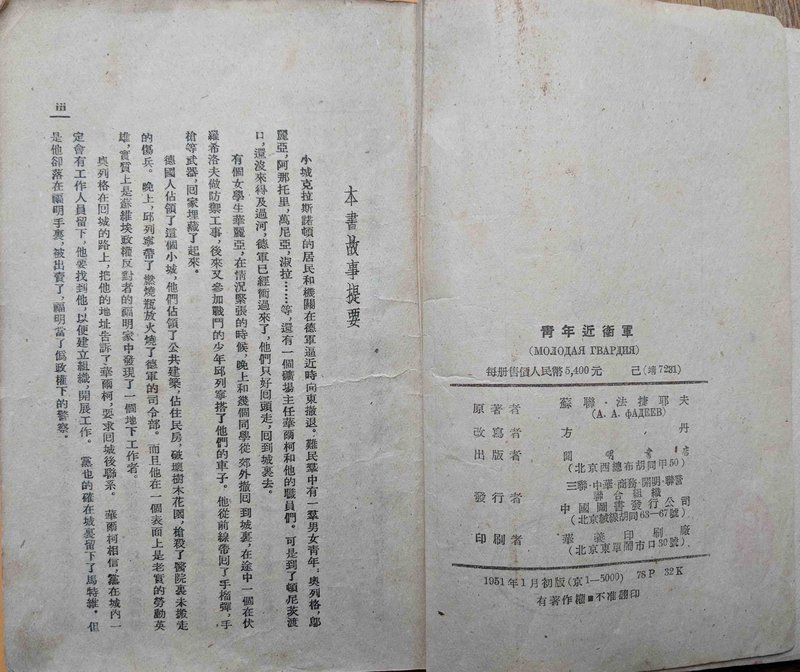 iii
本書故事提要
小城克拉斯諾頓的居民和機關在德軍逼近時向東撤退。難民羣中有一羣男女青年：奧列格，鄔
麗亞，阿那托里，萬尼亞，淑拉……等，還有一個礦場主任華爾柯和他的職員們。可是到了頓尼茨渡
口，還沒來得及過河，德軍已經衝過來了，他們只好回頭走，回到城裏去。
有個女學生華麗亞，在情況緊張的時候，晚上和幾個同學從郊外撤回到城裏，在途中一個在伏
羅希洛夫做防禦工事，後來又參加戰鬥的少年邱列寧搭了他們的車子。他從前線帶回了手榴彈，手
槍等武器，回家埋藏了起來。
德國人佔領了這個小城，他們佔領了公共建築，佔住民房，破壞樹木花園，槍殺了醫院裏未搬走
的傷兵。晚上，邱列寧帶了燃燒瓶放火燒了德軍的司令部。而且他在一個表面上是老實的勞動英
雄，實質上是蘇維埃政權反對者的福明家中發現了一個地下工作者。
奧列格在回城的路上，把他的地址告訴了華爾柯，要求回城後聯系。華爾柯相信，黨在城內一
定會有工作人員留下，他要找到他，以便建立組織，開展工作。黨也的確在城裏留下了馬特維。但
是他卻落在福明手裏，被出賣了，福明當了僞政權下的警察。
青年近衛軍
(МОЛОДАЯ ГВАРДИЯ)
每册售價人民幣5,400元 己(靖7231)
原著者 蘇聯·法捷耶夫
(А. А. ФАДЕЕВ)
改寫者 方丹
出版者 開明書店
(北京西總布胡同甲50)
三聯·中華·商務·開明·聯營
聯合組織
發行者 中國圖書發行公司
(北京絨線胡同63—67號)
印刷者 華義印刷廠
(北京東單閘市口30號)
1951年1月初版(京1—5000) 78P 32K
有著作權■不准翻印